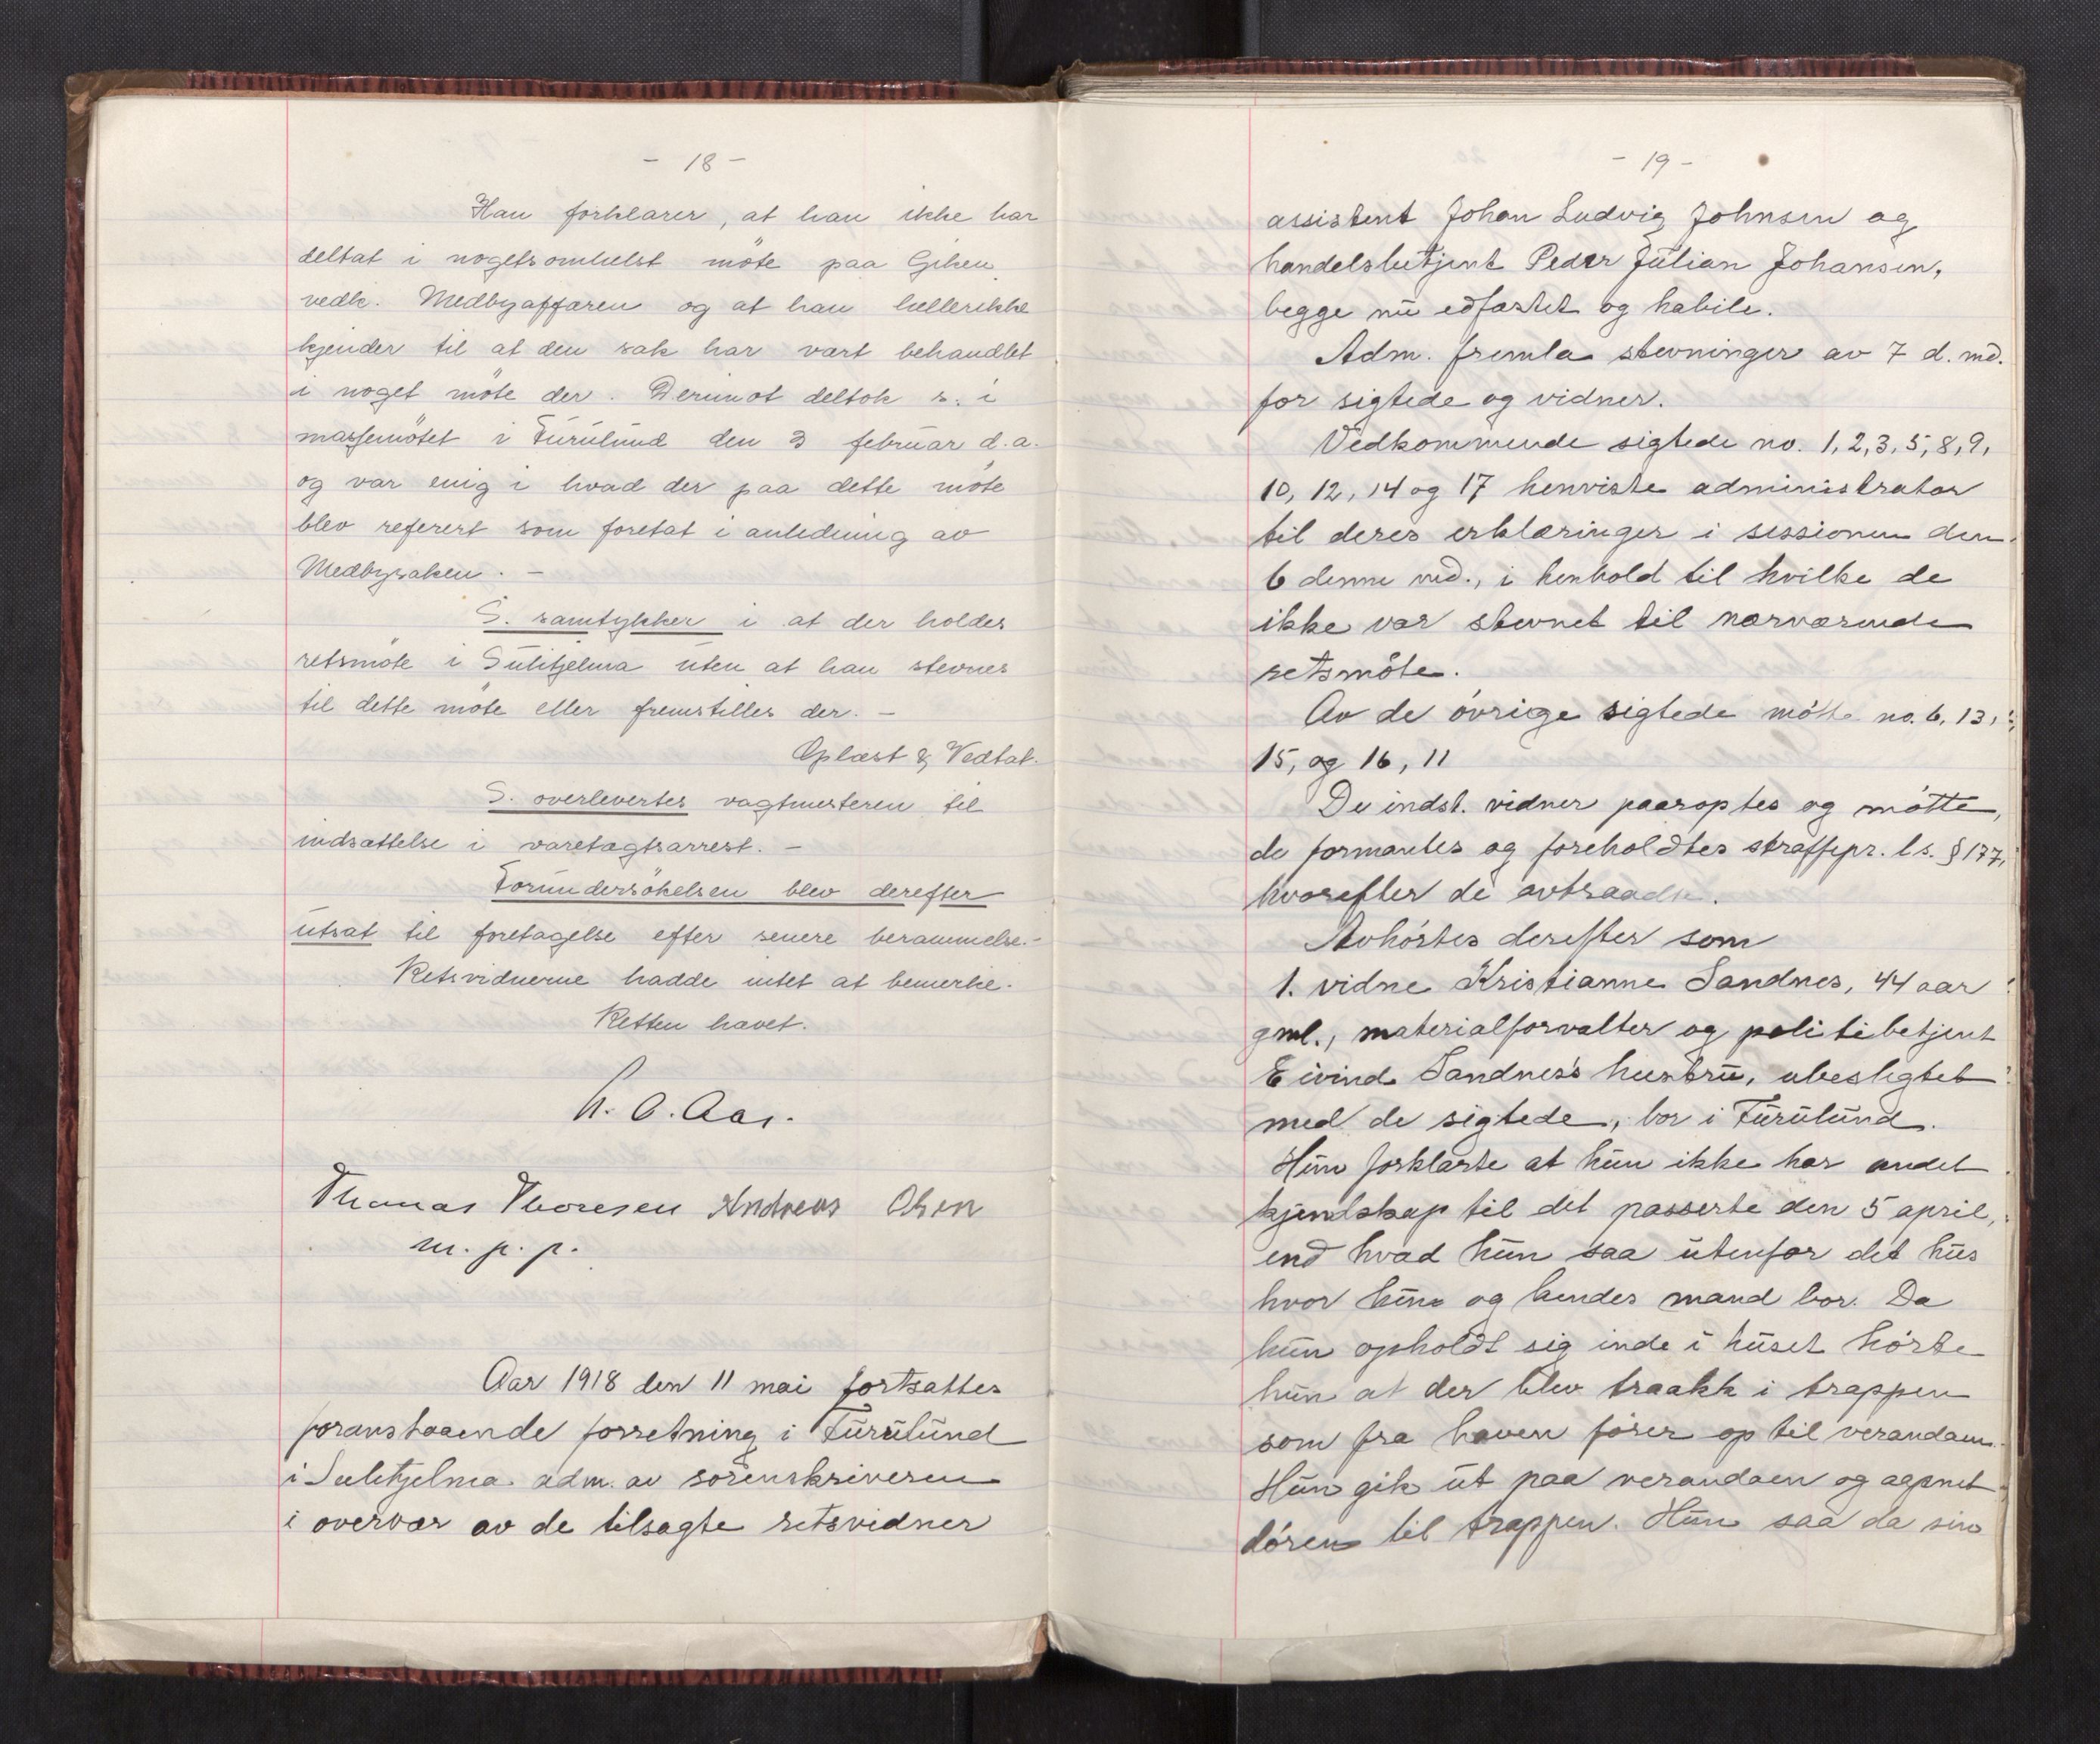 - 18 -
Han forklarer, at han ikke har
deltat i nogetsomhelst möte paa Giken
vedk. Medbyaffæren og at han hellerikke
kjender til at den sak har vært behandlet
i noget möte der. Derimot deltok s. i
massemötet i Furulund den 3 februar d.a.
og var enig i hvad der paa dette möte
blev referert som foretat i anledning av
Medbysaken. -
S. samtykker i at der holdes
retsmöte i Sulitjelma uten at han stevnes
til dette möte eller fremstilles der. -
Oplæst & Vedtat.
S. overlevertes vagtmesteren til
indsættelse i varetægtsarrest. -
Forundersökelsen blev derefter
utsat til foretagelse efter senere berammelse. -
Retsvidnerne hadde intet at bemerke.
Retten hævet.
Thomas Thoresen Andreas Olsen
m. p. p.
Aar 1918 den 11 mai fortsattes
foranstaaende forretning i Furulund
i Sulitjelma adm. av sorenskriveren
i overvær av de tilsagte retsvidner
- 19 -
assistent Johan Ludvig Johnsen og
handelsbetjent Peder Julian Johansen,
begge nu edfæstet og habile.
Adm. fremla stevninger av 7 d. md.
for sigtede og vidner.
Vedkommende sigtede no. 1, 2, 3, 5, 8, 9,
10, 12, 14 og 17 henviste administrator
til deres erklæringer i sessionen den
6 denne md., i henhold til hvilke de
ikke var stevnet til nærværende
retsmöte.
Av de övrige sigtede mötte no. 6, 13,
15, og 16, 11
De indst. vidner paaroptes og mötte,
de formantes og foreholdtes straffepr. ls. § 177,
hvorefter de avtraadte.
Avhörtes derefter som
1. vidne Kristianne Sandnes, 44 aar
gml., materialforvalter og politibetjent
Eivind Sandnes's hustru, ubeslegtet
med de sigtede, bor i Furulund.
Hun forklarte at hun ikke har andet
kjendskap til det passerte den 5 april,
end hvad hun saa utenfor det hus
hvor hun og hendes mand bor. Da
hun opholdt sig inde i huset hörte
hun at der blev traakk i trappen
som fra haven förer op til verandaen.
Hun gik ut paa verandaen og aapnet
dören til trappen. Hun saa da sin